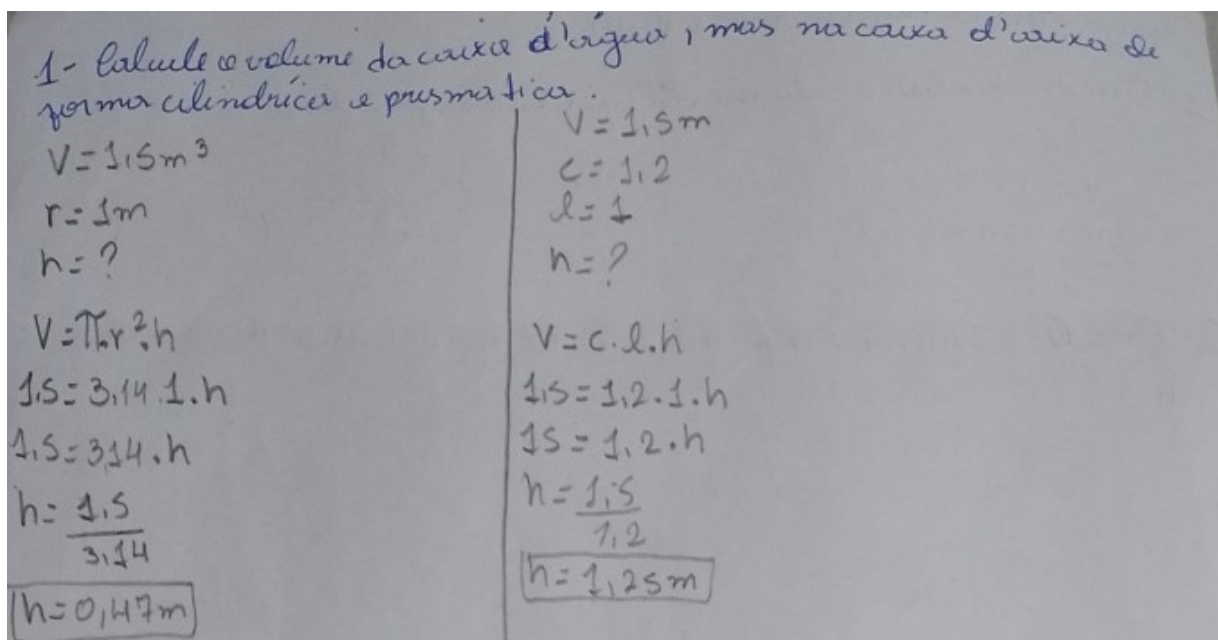 1- Calcule o volume da caixa d'água, mas na caixa d'caixa de
forma cilindrica e prismatica.
V=1,5m³
r=1m
h=?
V=π.r².h
1,5=3,14.1.h
1,5=3,14.h
h=1,5/3,14
h=0,47m
V=1,5m
c=1,2
l=1
h=?
V=c.l.h
1,5=1,2.1.h
15=1,2.h
h=1,5/1,2
h=1,25m